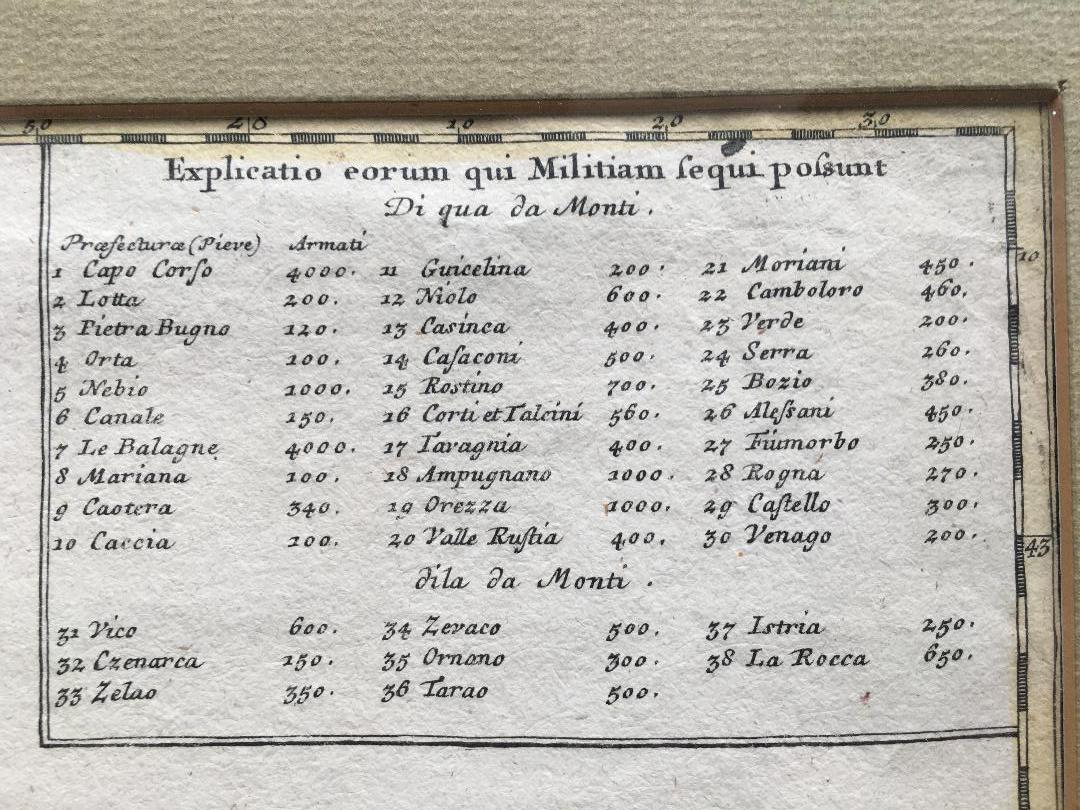 50 40 10 20 30
Explicatio eorum qui Militiam ſequi poſsunt
Di qua da Monti.
Præfecturæ (Pieve) Armati
1 Capo Corſo 4000. 11 Guicelina 200. 21 Moriani 450.
2 Lotta 200. 12 Niolo 600. 22 Camboloro 460.
3 Pietra Bugno 120. 13 Casinca 400. 23 Verde 200.
4 Orta 100. 14 Caſaconi 500. 24 Serra 260.
5 Nebio 1000. 15 Rostino 700. 25 Bozio 380.
6 Canale 150. 16 Corti et Talcini 560. 26 Aleſsani 450.
7 Le Balagne 4000. 17 Taragnia 400. 27 Fiumorbo 250.
8 Mariana 100. 18 Ampugnano 1000. 28 Rogna 270.
9 Caotera 340. 19 Orezza 1000. 29 Caſtello 300.
10 Caccia 100. 20 Valle Ruſtia 400. 30 Venago 200.
dila da Monti.
31 Vico 600. 34 Zevaco 500. 37 Istria 250.
32 Czenarca 150. 35 Ornano 300. 38 La Rocca 650.
33 Zelao 350. 36 Tarao 500.
10
43